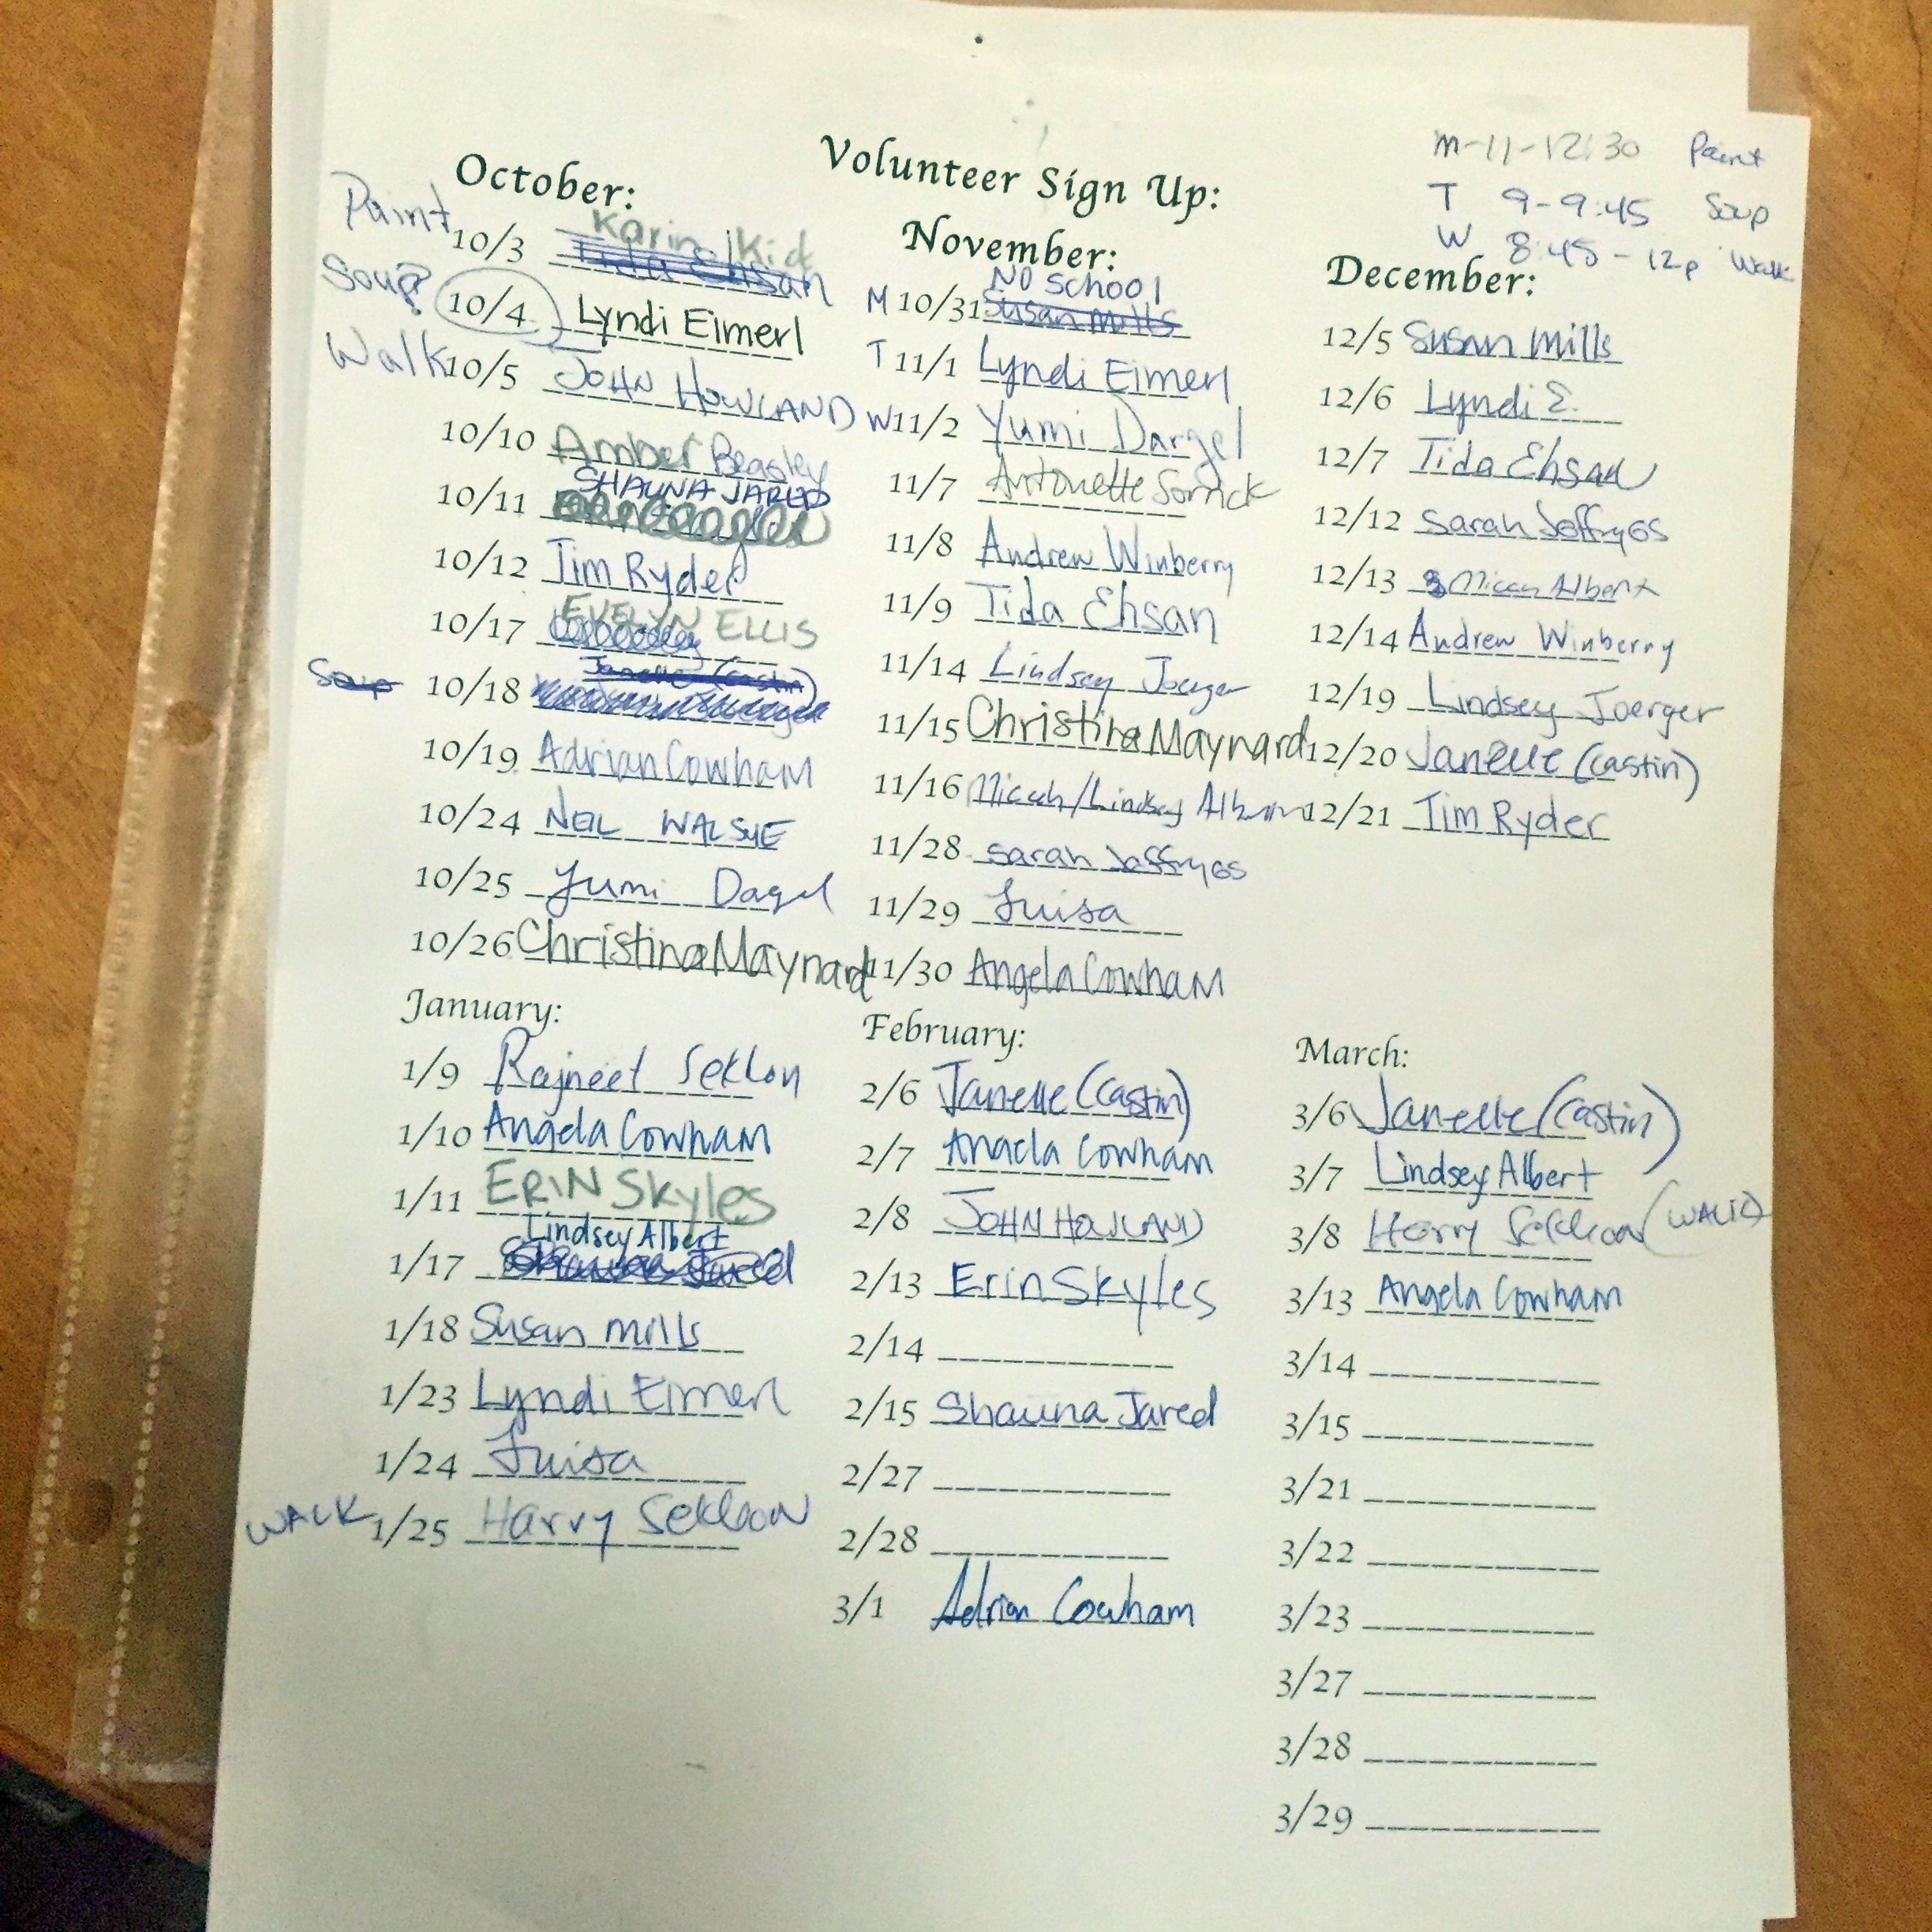 Volunteer Sign Up:
m-11-12:30 Paint
T 9-9:45 Soup
W 8:45-12p Walk
October:
Paint 10/3 Karin Kid
Tida Ehsan
Soup? 10/4 Lyndi Eimerl
Walk 10/5 JOHN HOWLAND
10/10 Amber Beagley
SHAUNA JARED
10/11
10/12 Tim Ryder
10/17 EVELYN ELLIS
Soup 10/18 Janelle (Castin)
10/19 Adrian Cowham
10/24 NEIL WALSHE
10/25 Yumi Dagel
10/26 Christina Maynard
November:
No School
M 10/31 Susan Mills
T 11/1 Lyndi Eimerl
W 11/2 Yumi Dargel
11/7 Antonette Sorrick
11/8 Andrew Winberry
11/9 Tida Ehsan
11/14 Lindsey Joerger
11/15 Christina Maynard
11/16 Micah/Lindsey Albert
11/28 Sarah Joffryes
11/29 Luisa
11/30 Angela Cowham
December:
12/5 Susan Mills
12/6 Lyndi E.
12/7 Tida Ehsan
12/12 Sarah Joffryes
12/13 Micah Albert
12/14 Andrew Winberry
12/19 Lindsey Joerger
12/20 Janelle (Castin)
12/21 Tim Ryder
January:
1/9 Rajneet Sekhon
1/10 Angela Cowham
1/11 ERIN Skyles
Lindsey Albert
1/17 Shauna Jared
1/18 Susan Mills
1/23 Lyndi Eimerl
1/24 Luisa
WALK 1/25 Harry Sekhon
February:
2/6 Janelle (Castin)
2/7 Angela Cowham
2/8 JOHN HOWLAND
2/13 Erin Skyles
2/14
2/15 Shauna Jared
2/27
2/28
3/1 Adrian Cowham
March:
3/6 Janelle (Castin)
3/7 Lindsey Albert
3/8 Harry Sekhon (WALK)
3/13 Angela Cowham
3/14
3/15
3/21
3/22
3/23
3/27
3/28
3/29